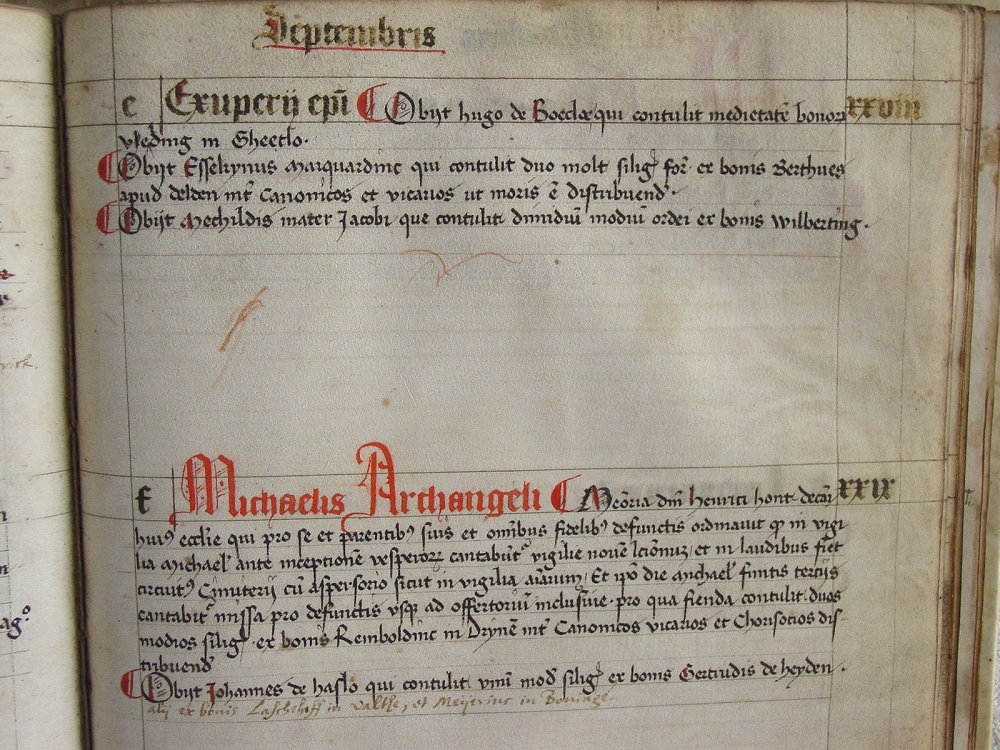 Septembris
e Exuperij epī Obijt hugo de Boecloe qui contulit medietatē bonorꝝ xxviii
vleding in Gheetlo.
Obijt Esselynus Marquardinc qui contulit duo molt siligꝭ for̄ ex bonis Berthues
apud delden int̄ Canonicos et vicarios ut moris ē distribuend.
Obijt Mechildis mater Jacobi que contulit dimidiū modiū ordei ex bonis Wilberting.
f Michaelis Archangeli Meōria dn̄i henrici hont decai xxix
huiꝰ ecclie qui pro se et parentibꝰ suis et om̄ibus fidelibꝰ defunctis ordinavit qꝫ in vigi
lia Michael ante inceptionē vesperorꝝ cantabūt vigilie novē lcionuꝫ, et in laudibus fiet
circuitꝰ Cimiterij cū aspersorio sicut in vigilia aiarum, Et ipō die Michael finitis tercijs
cantabit missa pro defunctis usqꝫ ad offertoriū inclusive. pro qua fienda contulit duos
modios siligꝭ. ex bonis Remboldinc in Drynē int̄ Canonicos vicarios et Chorisocios dis-
tribuend
Obijt Johannes de haslo qui contulit unū mod siligꝭ ex bonis Gertrudis de heyden.
alij ex bonis Laschhoff in valthe, et Meyerinc in Boninge.